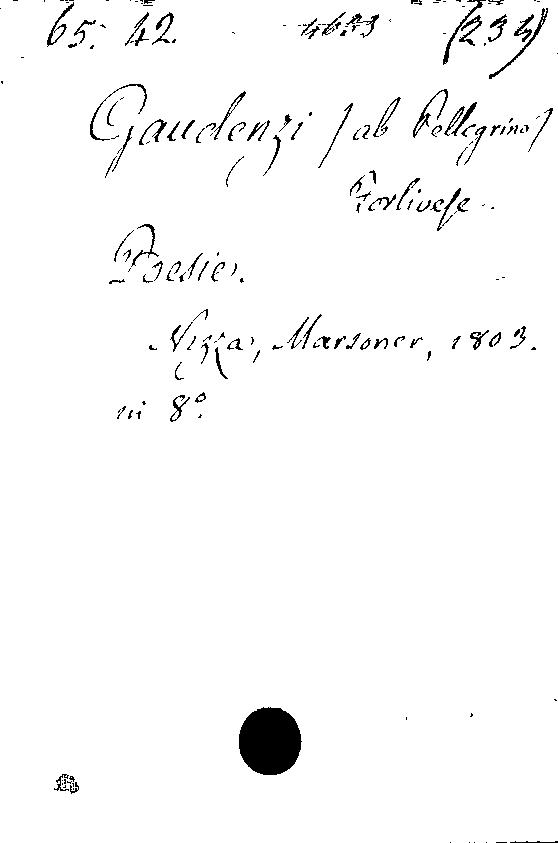 65. 42. 4623 (234)
Gaudenzi / ab Pellegrino /
Forlivese.
Poesie.
Nizza, Marsoner, 1803.
in 8º.